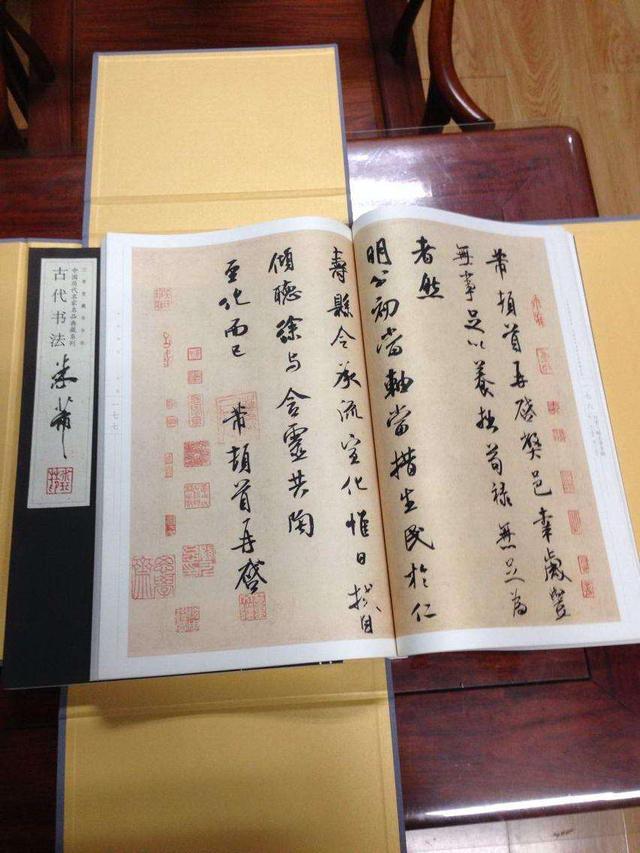 芾頓首再啓弊邑幸歲豐
無事足以養拙苟禄無足為
者然
明公初當軸當措生民於仁
壽縣令承流宣化惟日拭目
傾聽徐与含靈共陶
至化而已
芾頓首再啓
一七七
中国历代名家名品典藏系列
古代书法
米芾